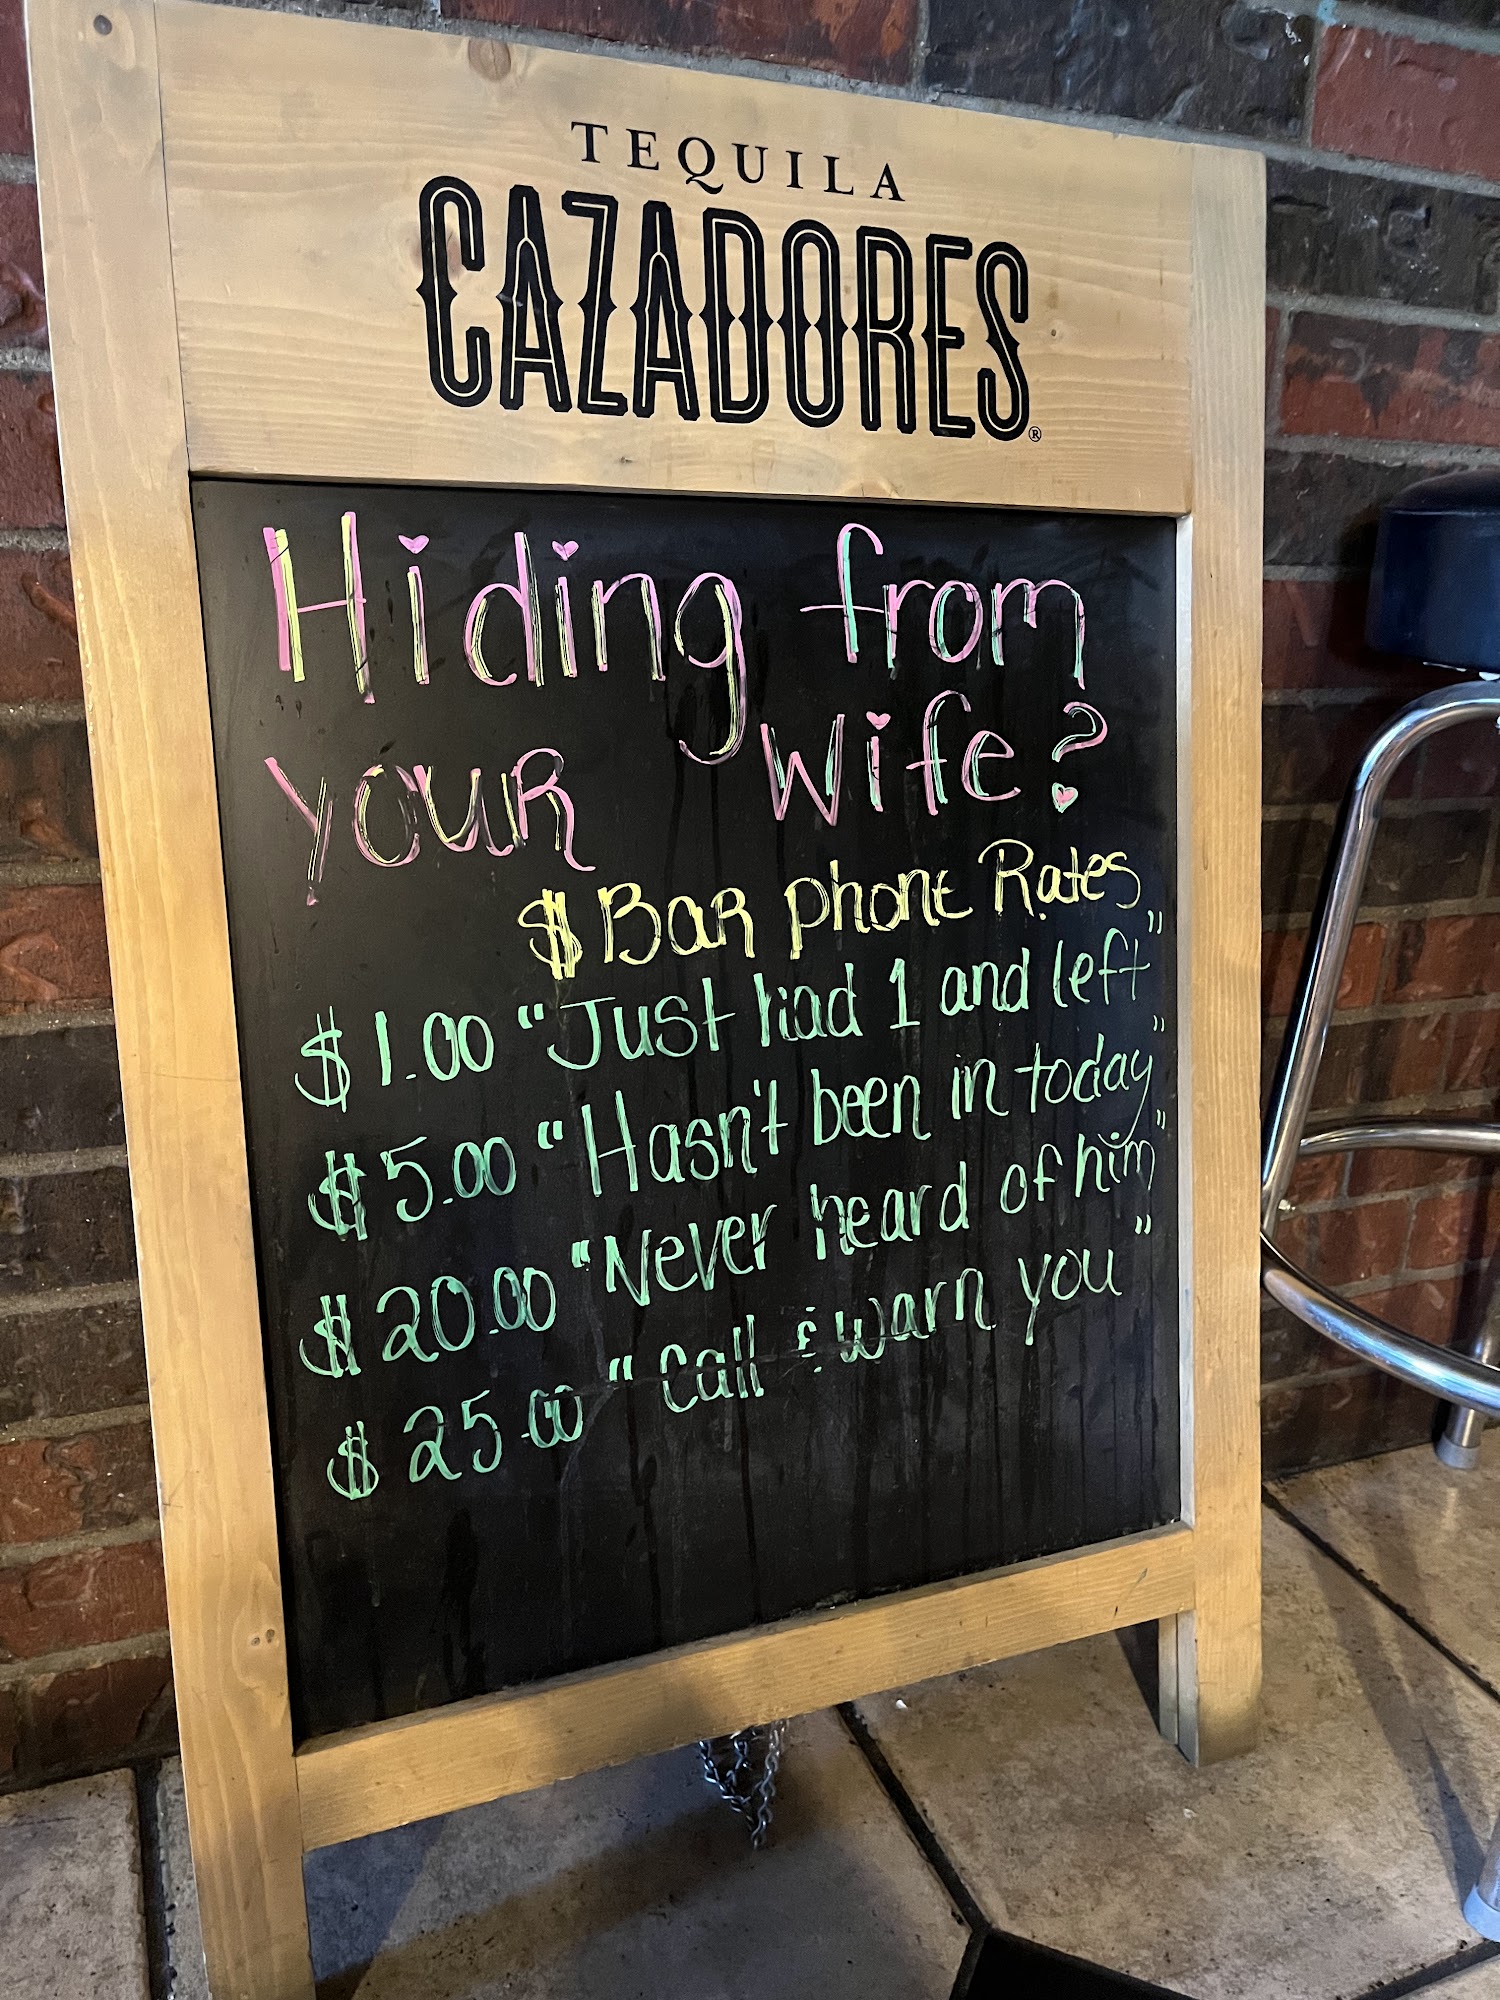 TEQUILA
CAZADORES®
Hiding from
your wife?
$ Bar phone Rates
$1.00 "Just had 1 and left"
$5.00 "Hasn't been in today"
$20.00 "Never heard of him"
$25.00 "Call & warn you"